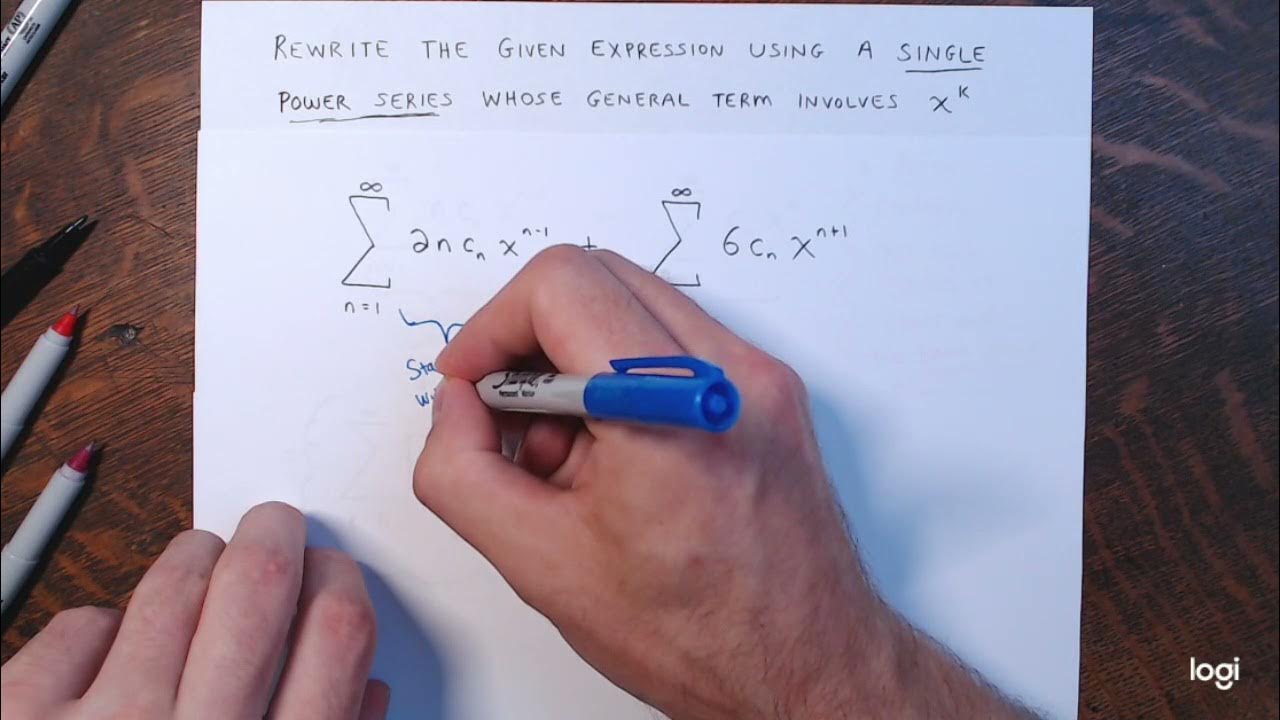 REWRITE THE GIVEN EXPRESSION USING A SINGLE
POWER SERIES WHOSE GENERAL TERM INVOLVES x^k
∞ ∞
∑ 2n c_n x^{n-1} + ∑ 6 c_n x^{n+1}
n=1
logi